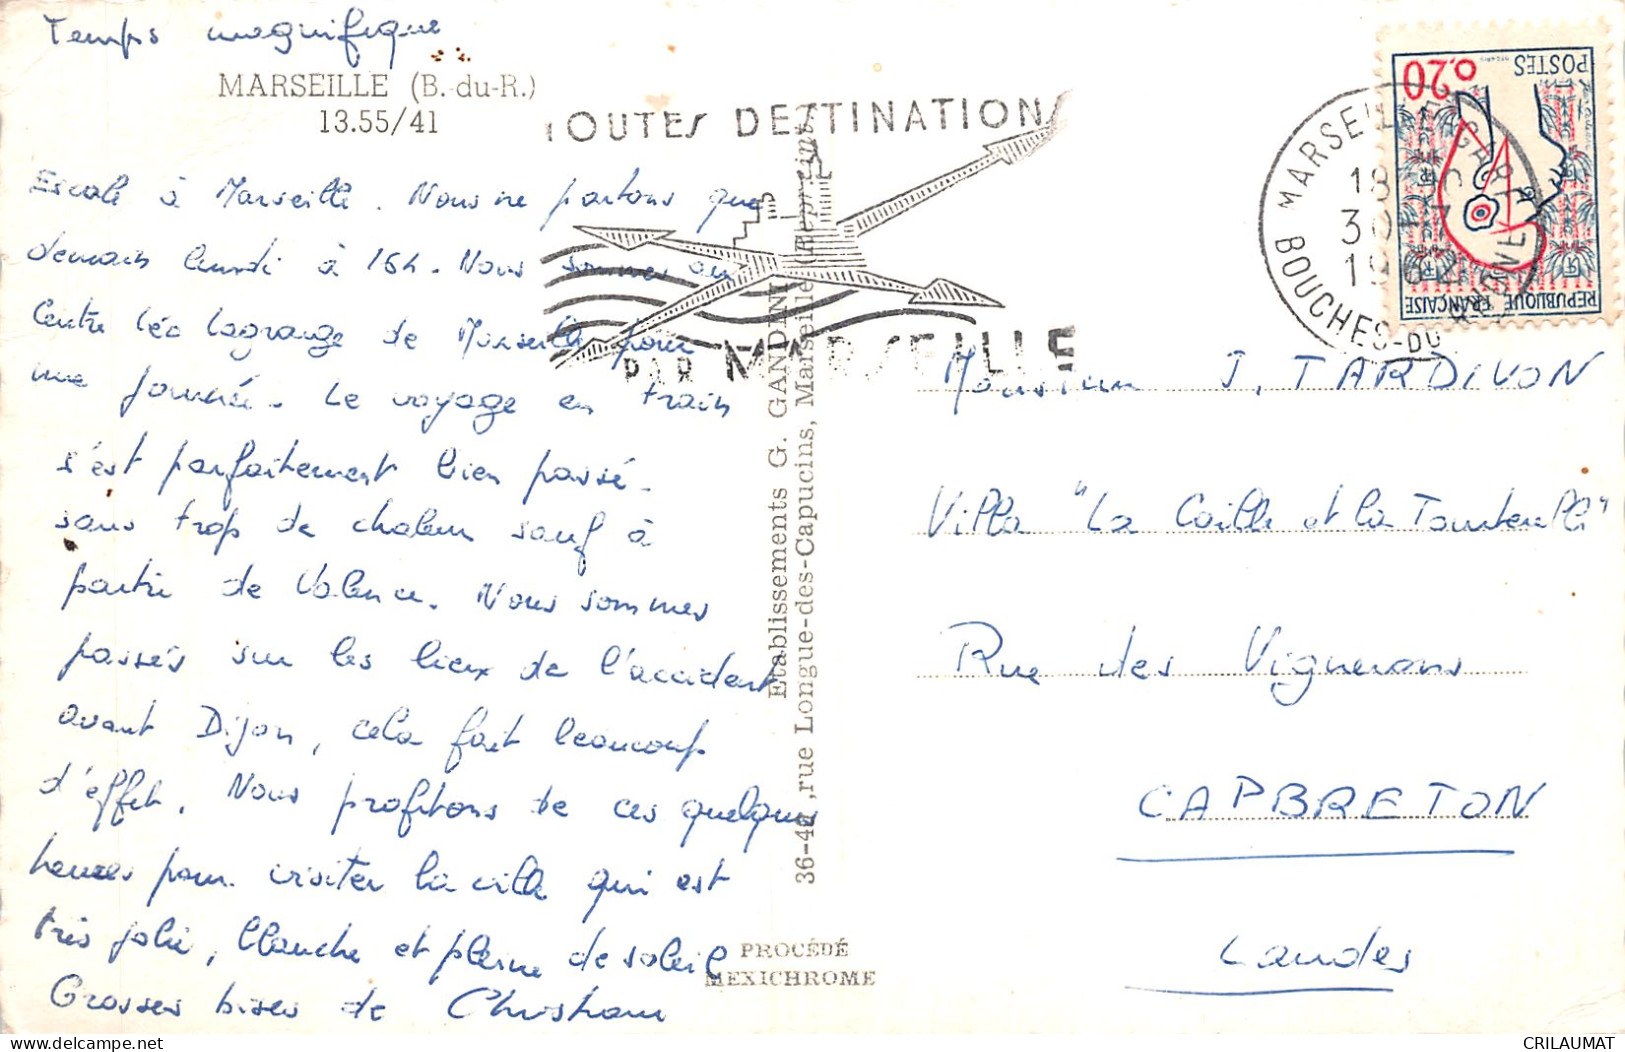 Temps magnifique
MARSEILLE (B.-du-R.)
13.55/41
Escale à Marseille. Nous ne partons que
demain lundi à 16h. Nous sommes au
Centre Léo Lagrange de Marseille pour
une journée. Le voyage en train
s'est parfaitement bien passé.
sans trop de chaleur sauf à
partir de Valence. Nous sommes
passés sur les lieux de l'accident
avant Dijon, cela fait beaucoup
d'effet. Nous profitons de ces quelques
heures pour visiter la ville qui est
très jolie, blanche et pleine de soleil
Grosses bises de Christiane
TOUTES DESTINATIONS
PAR MARSEILLE
Etablissements G. GANDINI
36-42, rue Longue-des-Capucins, Marseille (Reprint)
PROCÉDÉ
MEXICHROME
MARSEILLE GARE
18H
30-7
1962
BOUCHES-DU-RHONE
0,20
POSTES
REPUBLIQUE FRANÇAISE
RF
Monsieur J. TARDIVON
Villa "La Caille et la Tourterelle"
Rue des Vignerons
CAPBRETON
Landes
CRILAUMAT